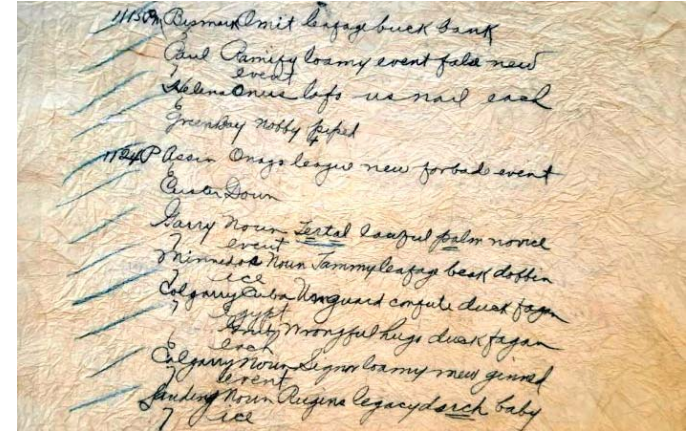 1115PM Bismark Omit leafage buck bank
E
Paul Ramify loamy event false new
7 event
Helena Onus lofo us nail each
E
Greenbay nobby piped
1124P Assin Onago league new forbade event
E
Custer Down
Garry Noun Tertal lawful palm novice
7 event
Minnedos Noun Jammy leafage beak dobbin
7 ice
Calgarry Cuba Unguard confute duck fagan
7 Egypt
Wrongful hugs duck fagan
each
Calgarry Noun Signor loamy new ginned
7 event
Landing Noun Rugins legacy dsrch baby
7 ice